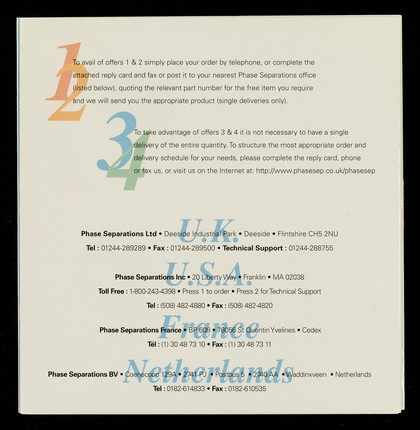 1
2
To avail of offers 1 & 2 simply place your order by telephone, or complete the
attached reply card and fax or post it to your nearest Phase Separations office
(listed below), quoting the relevant part number for the free item you require
and we will send you the appropriate product (single deliveries only).
3
4
To take advantage of offers 3 & 4 it is not necessary to have a single
delivery of the entire quantity. To structure the most appropriate order and
delivery schedule for your needs, please complete the reply card, phone
or fax us, or visit us on the Internet at: http://www.phasesep.co.uk/phasesep
U.K.
Phase Separations Ltd • Deeside Industrial Park • Deeside • Flintshire CH5 2NU
Tel : 01244-289289 • Fax : 01244-289500 • Technical Support : 01244-288755
U.S.A.
Phase Separations Inc • 20 Liberty Way • Franklin • MA 02038
Toll Free : 1-800-243-4398 • Press 1 to order • Press 2 for Technical Support
Tel : (508) 482-4880 • Fax : (508) 482-4820
France
Phase Separations France • BP 608 • 78056 St Quentin Yvelines • Cedex
Tél : (1) 30 48 73 10 • Fax : (1) 30 48 73 11
Netherlands
Phase Separations BV • 129A • 2741 • Postbus • 2740 AA • Waddinxveen • Netherlands
Tel : 0182-614833 • Fax : 0182-610535